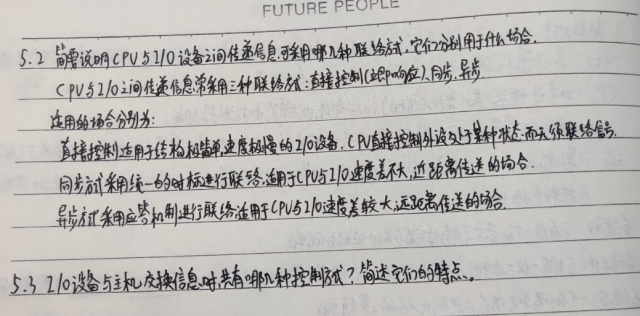 FUTURE PEOPLE
5.2 简要说明CPU与I/O设备之间传递信息可采用哪几种联络方式,它们分别用于什么场合.
CPU与I/O之间传递信息常采用三种联络方式:直接控制(立即响应)、同步、异步
适用的场合分别为:
直接控制适用于结构极简单,速度极慢的I/O设备,CPU直接控制外设处于某种状态而无须联络信号.
同步方式采用统一的时标进行联络,适用于CPU与I/O速度差不大,近距离传送的场合.
异步方式采用应答机制进行联络,适用于CPU与I/O速度差较大,远距离传送的场合
5.3 I/O设备与主机交换信息时,共有哪几种控制方式?简述它们的特点.